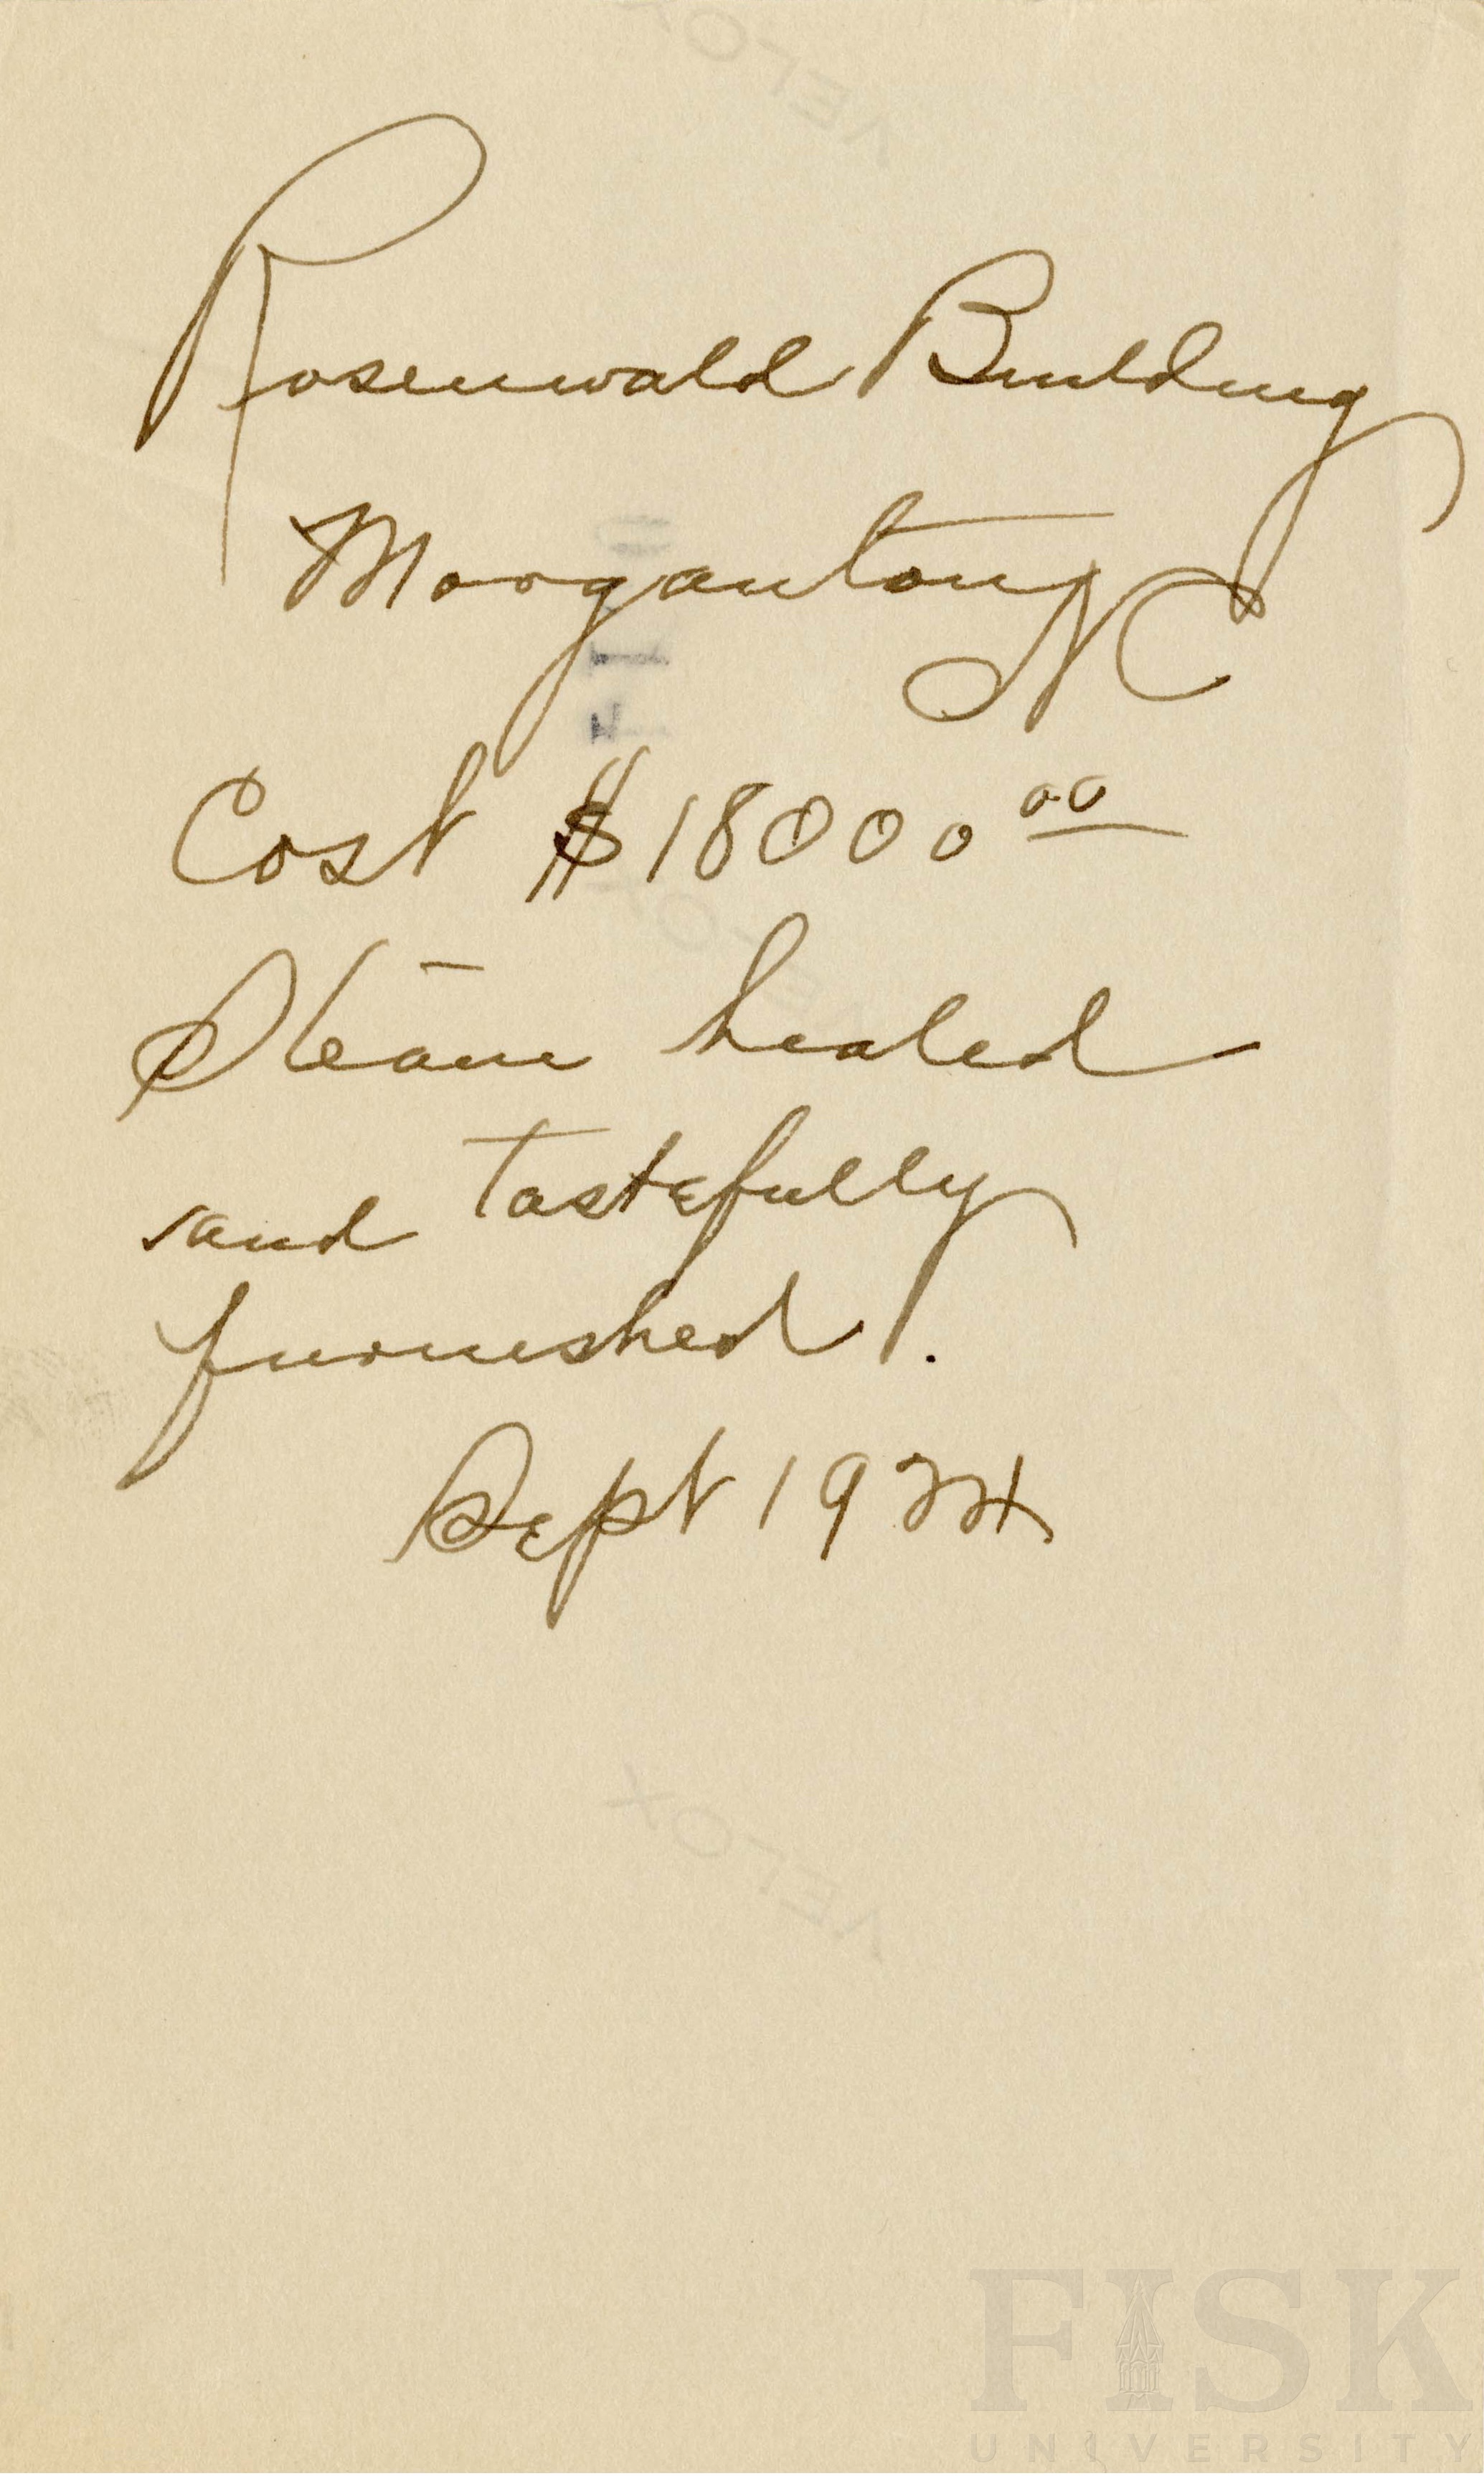 Rosenwald Building
Morganton, N C
Cost $18000.00
Steam heated
and tastefully
furnished.
Sept 1924
VELOX
FISK
UNIVERSITY